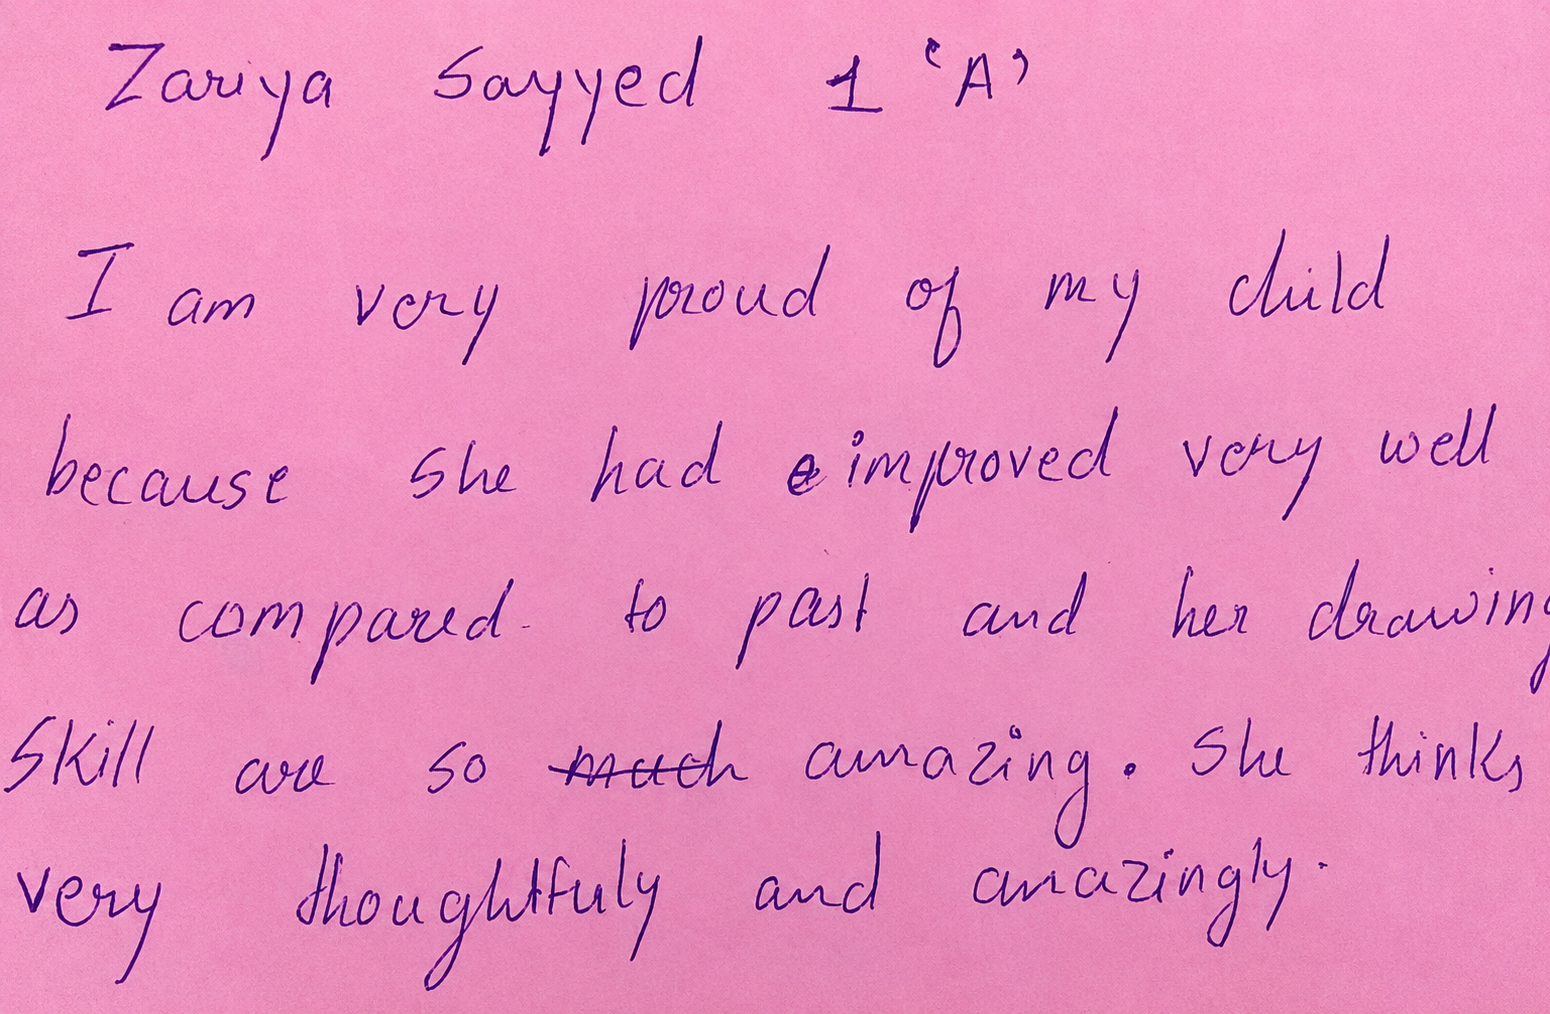 Zariya Sayyed 1 ‘A’
I am very proud of my child
because she had improved very well
as compared to past and her drawing
skill are so much amazing. She thinks
very thoughtfuly and amazingly.